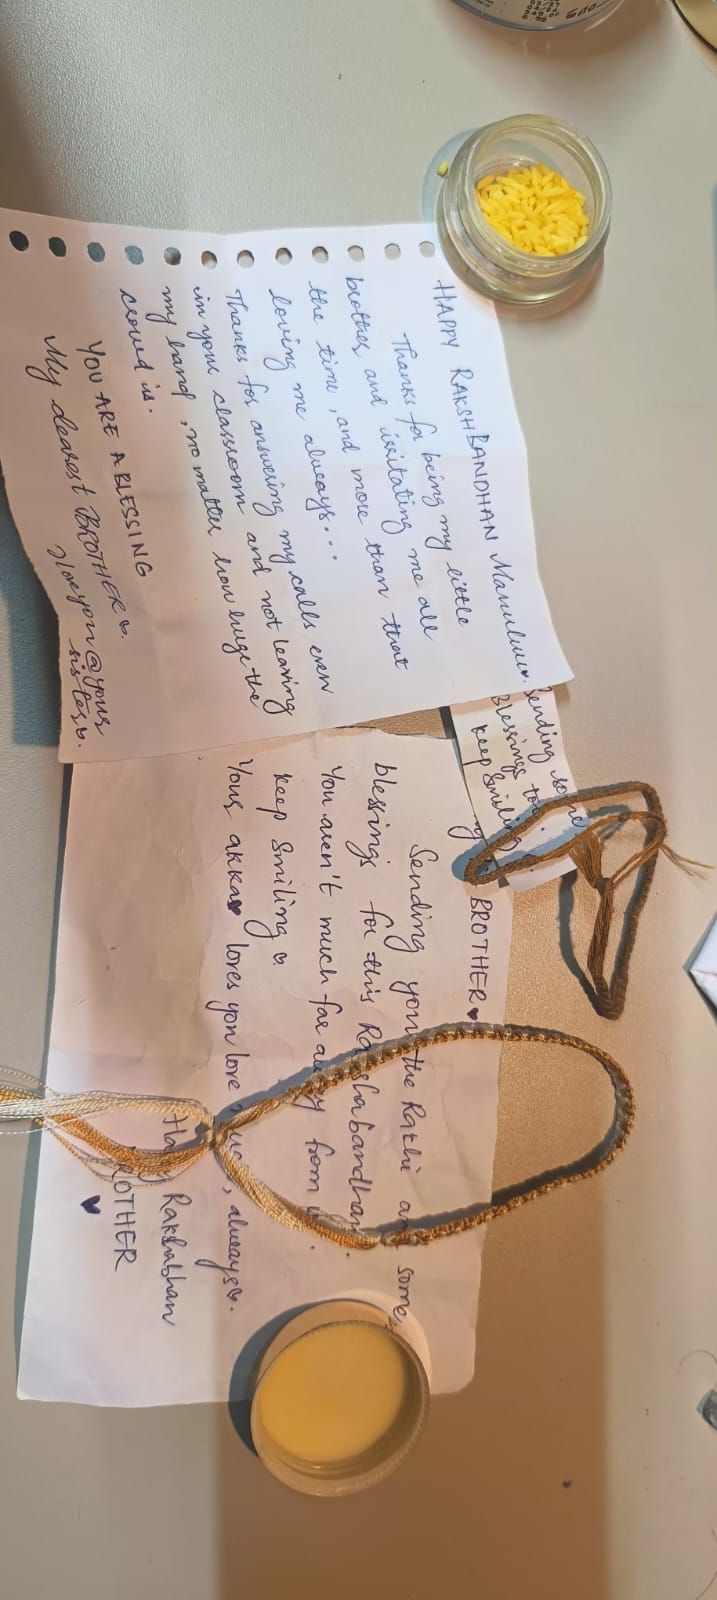 HAPPY RAKSHBANDHAN
Thanks for being my little
brother, and irritating me all
the time, and more than that
loving me always...
Thanks for answering my calls even
in your classroom and not leaving
my hand, no matter how huge the
crowd is.
YOU ARE A BLESSING
My dearest BROTHER
I love you @your
sister.
Sending some
Blessings too.
keep Smiling
BROTHER
Sending you the Rakhi and some
blessings for this
You aren't much far away from
keep Smiling
Your akka loves you love, always.
Rakshabhan
BROTHER